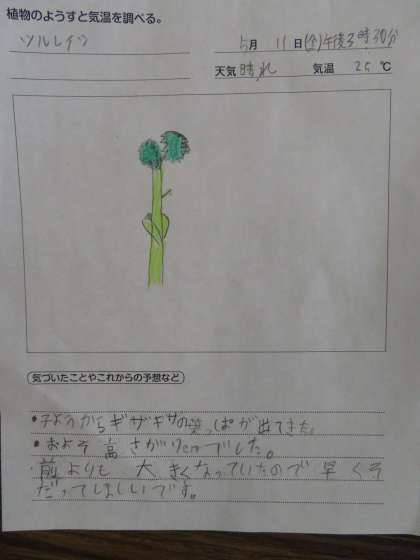 植物のようすと気温を調べる。
ツルレイシ
5月 11日(金)午後3時30分
天気 晴れ 気温 25℃
気づいたことやこれからの予想など
・子ようからギザギザの葉っぱが出てきた。
・およそ高さが12cmでした。
・前よりも大きくなっていたので早くそ
だってほしいです。